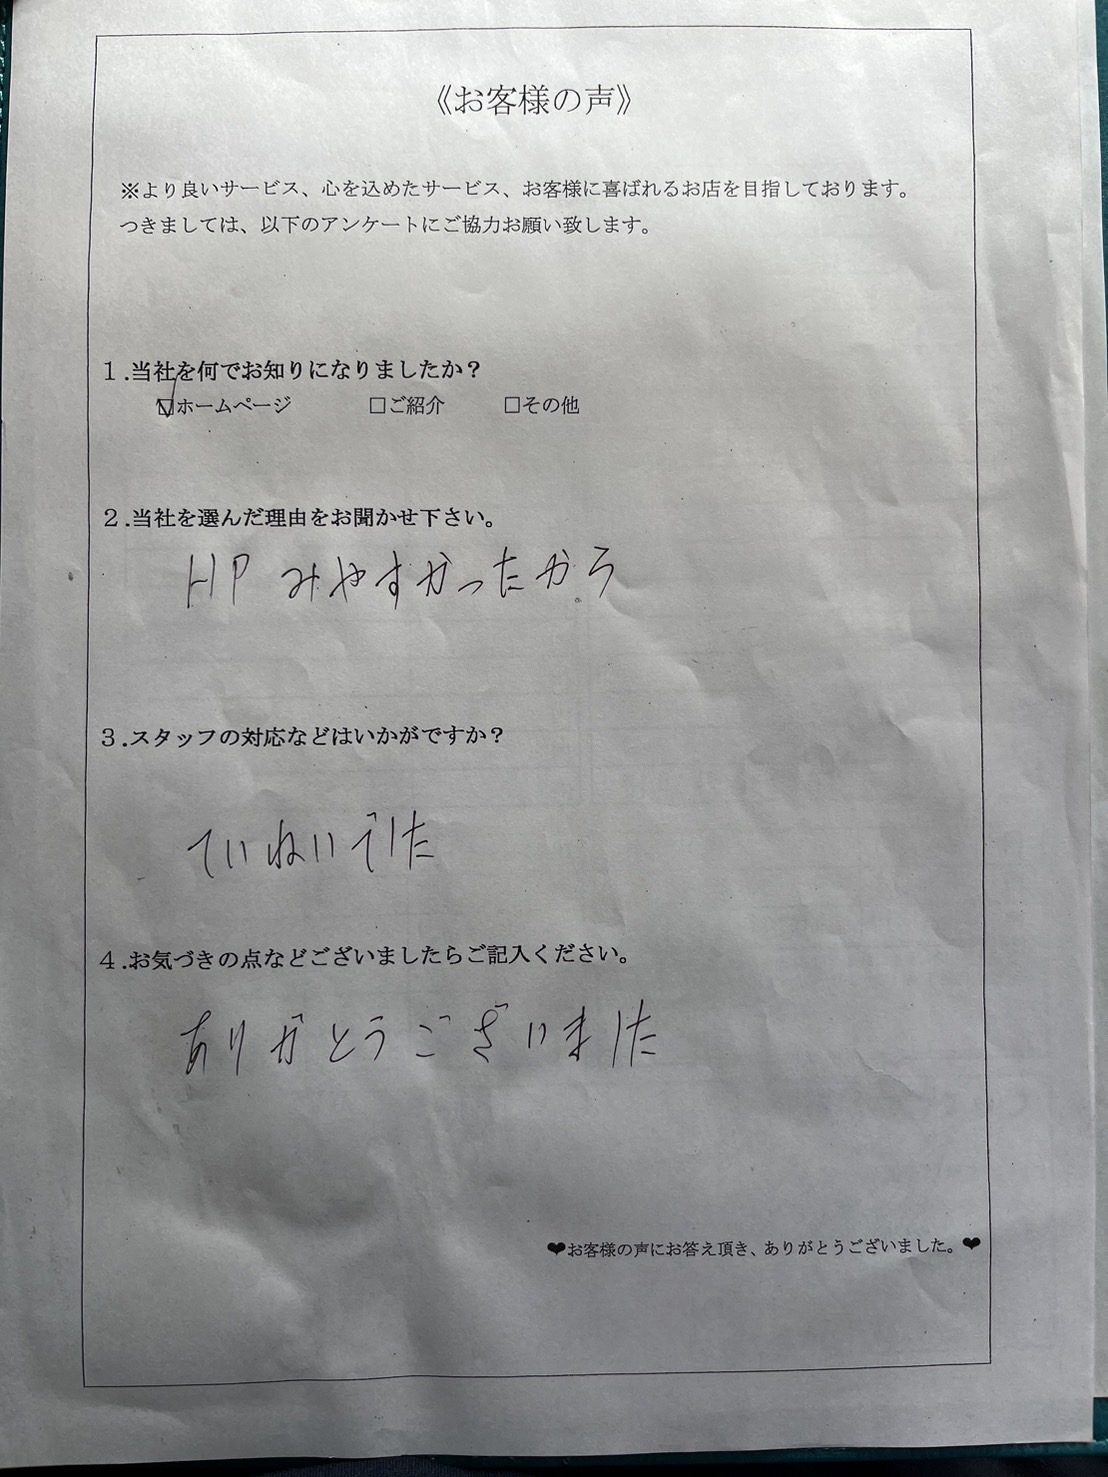 《お客様の声》
※より良いサービス、心を込めたサービス、お客様に喜ばれるお店を目指しております。
つきましては、以下のアンケートにご協力お願い致します。
１.当社を何でお知りになりましたか？
☑ホームページ □ご紹介 □その他
２.当社を選んだ理由をお聞かせ下さい。
HP みやすかったから
３.スタッフの対応などはいかがですか？
ていねいでした
４.お気づきの点などございましたらご記入ください。
ありがとうございました
❤お客様の声にお答え頂き、ありがとうございました。❤